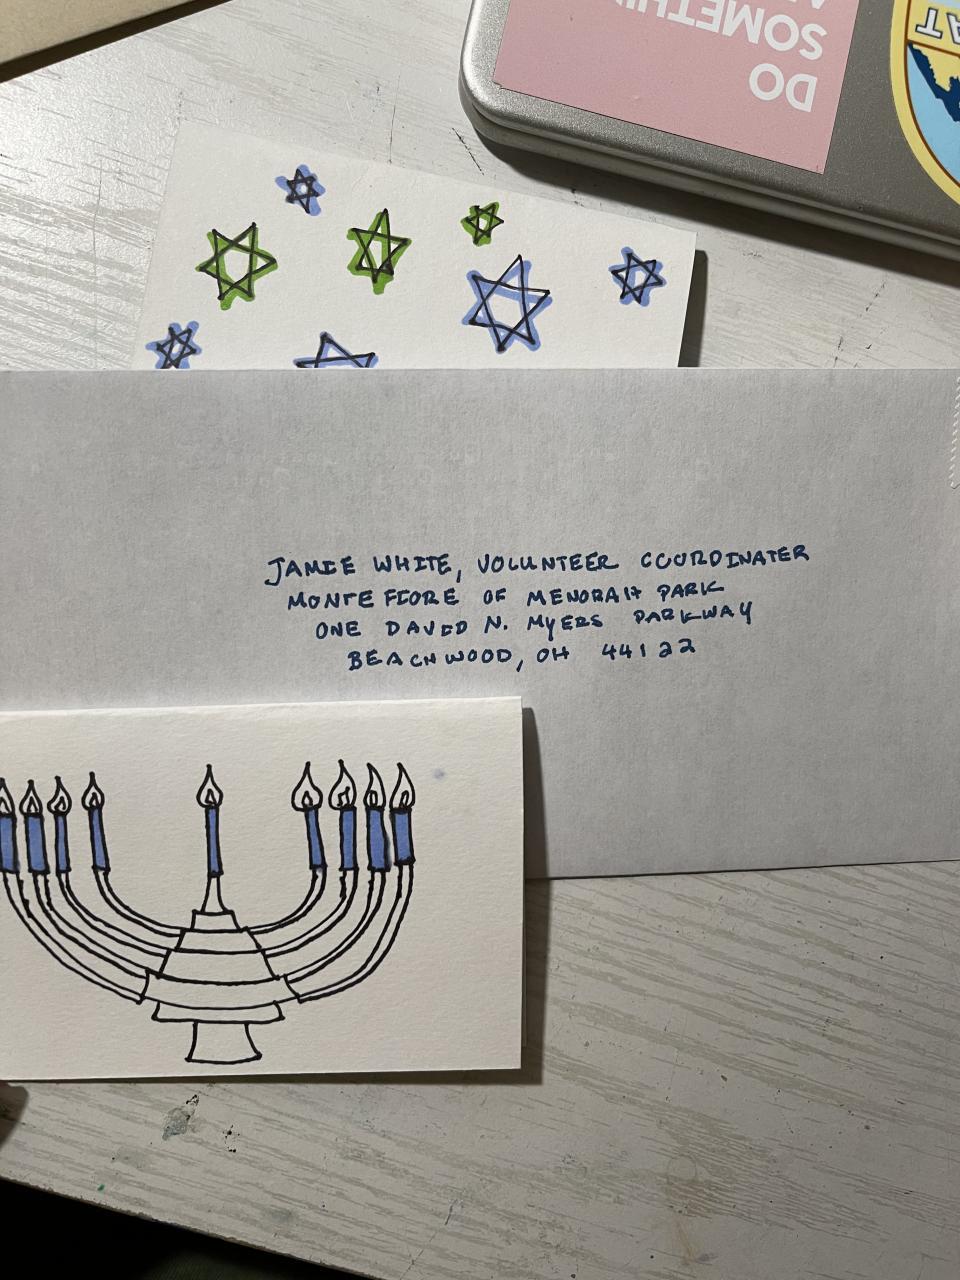 DO
SOMETHIN
JAMIE WHITE, VOLUNTEER COORDINATER
MONTEFIORE OF MENORAH PARK
ONE DAVID N. MYERS PARKWAY
BEACHWOOD, OH 44122